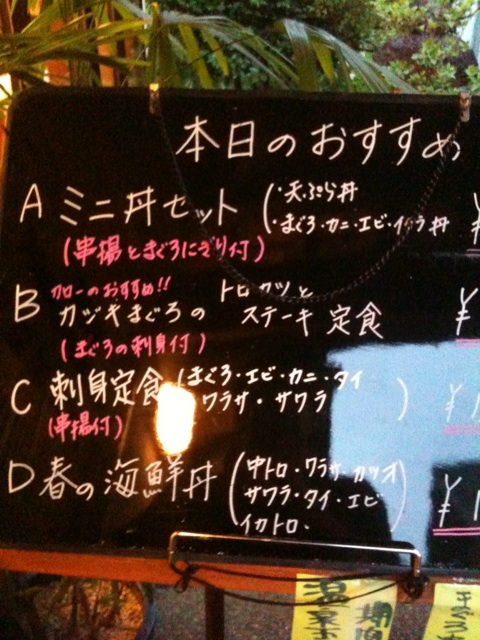 本日のおすすめ
A ミニ丼セット (・天ぷら丼
・まぐろ・カニ・エビ・イクラ丼 ¥
(串揚とまぐろにぎり付)
B カローのおすすめ!! トロカツと
カジキまぐろの ステーキ定食 ¥
(まぐろの刺身付)
C 刺身定食 (まぐろ・エビ・カニ・タイ
ワラサ・サワラ ) ¥1
(串揚付)
D 春の海鮮丼 (中トロ・ワラサ・カツオ
サワラ・タイ・エビ ¥1
イカトロ・ )
温泉